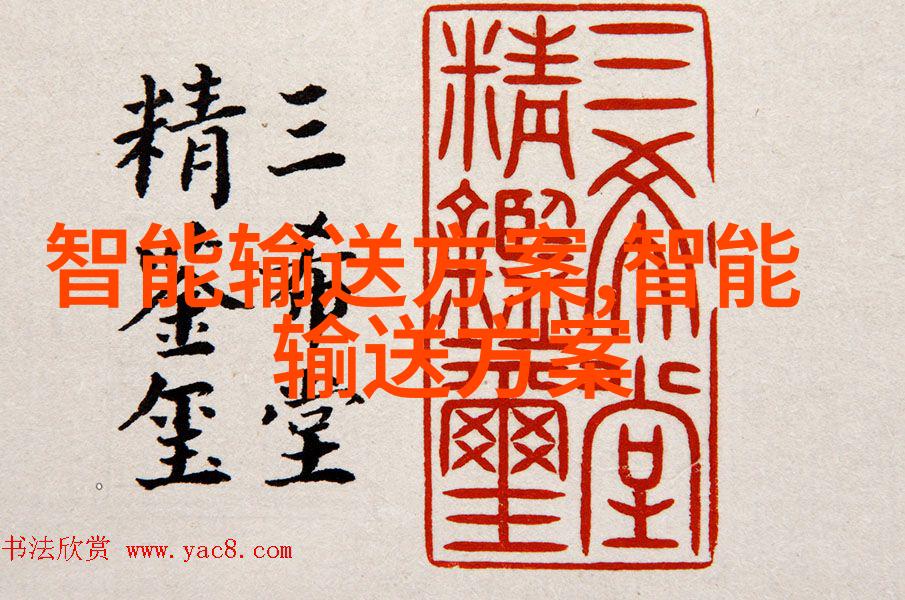 三希堂
精鑑璽
三希堂
精鉴玺
智能输送方案,智能
输送方案
书法欣赏 www.yac8.com